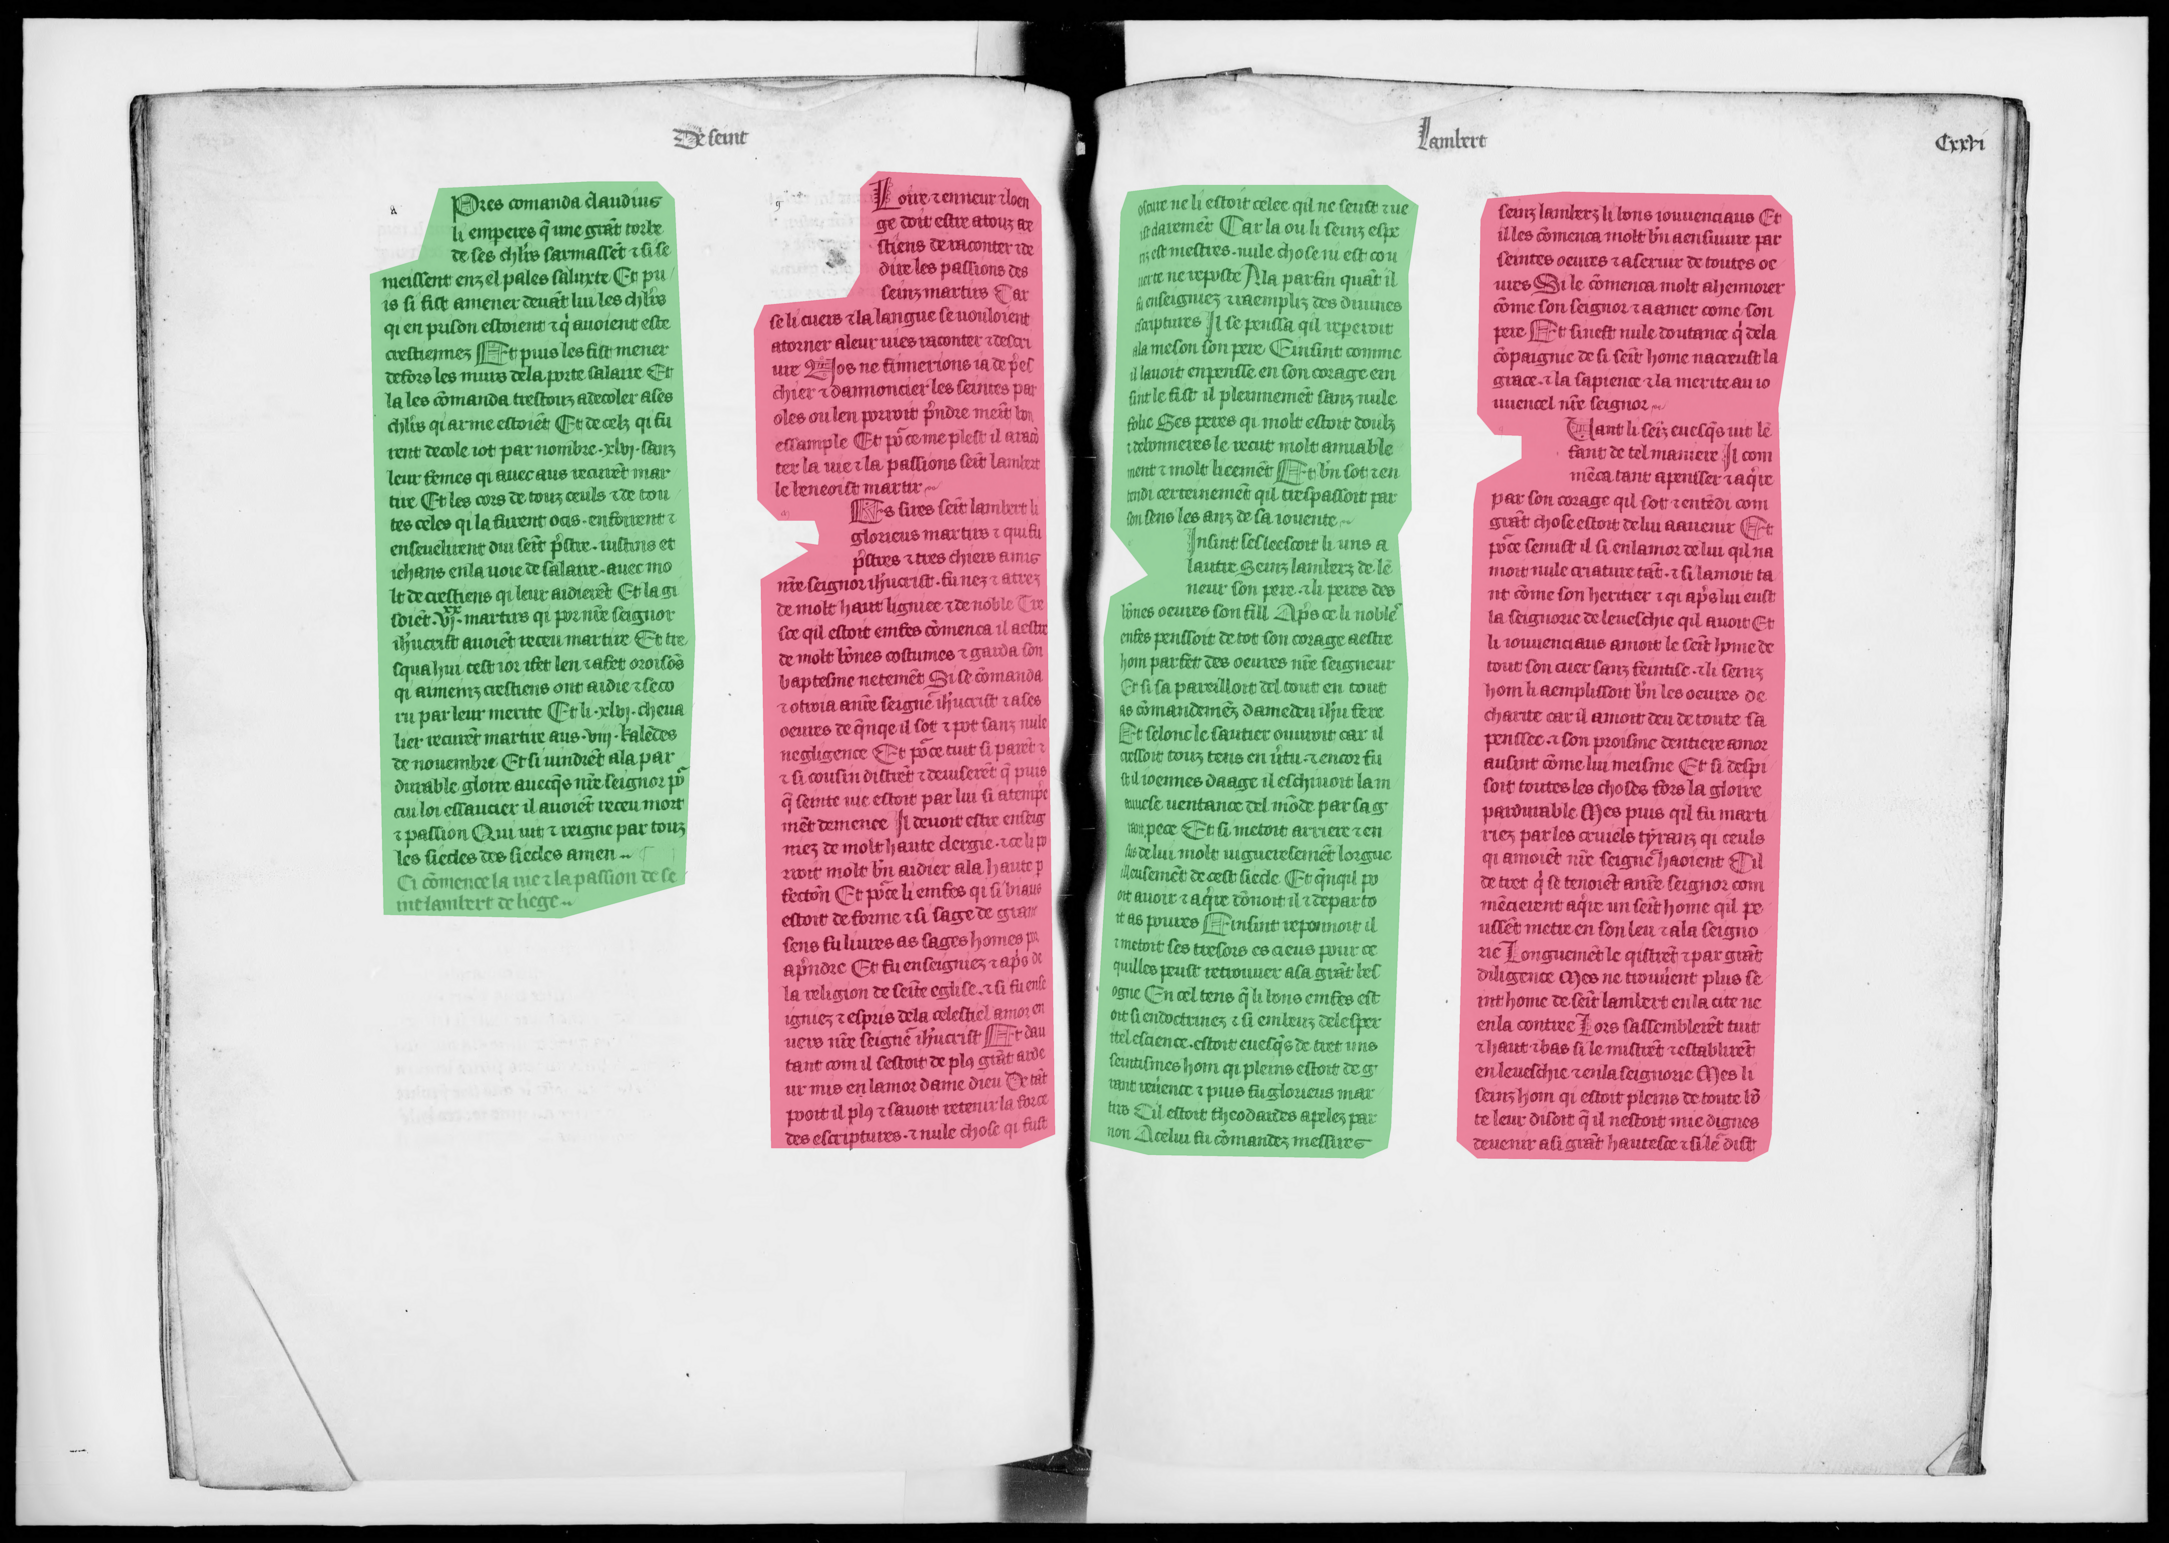 De seint
Pres comanda claudius
li emperes q̃ une grãt torbe
de ses chl̃rs sarmassẽt ⁊ si se
meissent enz el pales salurte Et pu
is si fist amener devãt lui les chl̃rs
qi en prison estoient ⁊ q̓ avoient este
crestiennez Et puis les fist mener
defors les murs dela porte salarie Et
la les cõmanda trestouz adecoler ases
chl̃rs qi arme estoiẽt Et de celz qi fu
rent decole iot par nombre .xlvj. sanz
leur femes qi avec aus recurẽt mar
tire Et les cors de touz ceuls ⁊ de tou
tes celes qi la furent ocis . enforrent ⁊
ensevelirent dui seĩt p̃stre . iustins et
iehans enla voie de salarie . avec mo
lt de crestiens qi leur aidierẽt Et la gi
soiẽt .vjxx. martirs qi por nr̃e seignor
ih̃ucrist avoiẽt receu martire Et tre
squa hui cest ior ifet len ⁊ afet oroisõs
qi aimeinz crestiens ont aidie ⁊ seco
ru par leur merite Et li .xlvj. cheva
lier recurẽt martire aus .viij. kalẽdes
de novembre Et si vindrẽt ala par
durable gloire avecq̃s nr̃e seignor põ
cui loi essaucier il avoiẽt receu mort
⁊ passion Qui vit ⁊ reigne par touz
les siecles des siecles amen
Ci cõmence la vie ⁊ la passion de se
int lambert de liege
Loire ⁊ enneur ⁊ loen
ge doit estre atouz cre
stiens de raconter ⁊ de
dire les passions des
seinz martirs Car
se li cuers ⁊ la langue se vouloient
atorner aleur vies raconter ⁊ descri
vre Nos ne finnerions ia de p̃es
chier ⁊ dannoncier les seintes par
oles ou len porroit p̃ndre meĩt bon
essample Et põ ce me plest il aracõ
ter la vie ⁊ la passions seĩt lambert
le beneoist martir
Es sires seĩt lambert li
glorieus martirs ⁊ qui fu
p̃stres ⁊ tres chiers amis
nr̃e seignor ih̃ucrist . fu nez ⁊ atrez
de molt haut ligniee ⁊ de noble Tre
sce qil estoit emfes cõmenca il aestre
de molt bõnes costumes ⁊ garda son
baptesme netemẽt Si se cõmanda
⁊ otroia anr̃e seignẽ ih̃ucrist ⁊ ases
oeures de q̃nqe il sot ⁊ pot sanz nule
negligence Et põce tuit si parẽt ⁊
⁊ si cousin distrẽt ⁊ deviserẽt q̃ puis
q̃ seinte vie estoit par lui si atempe
mẽt demence Il devoit estre enseig
niez de molt haute clergie . ⁊ ce li po
rroit molt bñ aidier ala haute p
fectoñ Et põce li emfes qi si biaus
estoit de forme ⁊ si sage de grant
sens fu livres as sages homes por
ap̃ndre Et fu enseigniez ⁊ ap̃s de
la religion de seĩte eglise . ⁊ si fu ense
igniez ⁊ espris dela celestiel amor en
vers nr̃e seignẽ ih̃ucrist Et dau
tant com il sestoit de plꝯ grãt arde
ur mis en lamor dame dieu De tãt
pooit il plꝯ ⁊ savoit retenir la force
des escriptures . ⁊ nule chose qi fust
Lambert
Cxxvi
oscure ne li estoit celee qil ne seust ⁊ ve
ist clarement Car la ou li seinz espe
riz est mestres . nule chose ni est cou
verte ne reposte A la parfin quãt il
fu enseigniez ⁊ raempliz des divines
escriptures Il se penssa qil reperoit
ala meson son pere Einsint comme
il lavoit enpensse en son corage ein
sint le fist il pleinnemẽt sanz nule
folie Ses peres qi molt estoit doulz
⁊ debonneres le recut molt amiable
ment ⁊ molt lieemẽt Et bñ sot ⁊ en
tendi certeinemẽt qil trespassoit par
son sens les anz de sa iouente
Insint sesleescoit li uns a
lautre Seinz lamberz de lẽ
neur son pere . ⁊ li peres des
bõnes oeures son fill Ap̃s ce li nobleˢ
enfes penssoit de tot son corage aestre
hom parfet des oeures nr̃e seigneur
Et si sa pareilloit del tout en tout
as cõmandemẽz damedeu ih̃u fere
Et selonc le sautier ouvroit car il
cressoit touz tens en v̓tu . ⁊ encor fu
st il ioennes daage il eschivoit lam
auvese ventance del mõde par sa g
rant pece Et si metoit arriere ⁊ en
sus de lui molt viguereusemẽt lorgue
illeusement de cest siecle Et q̃nqil po
oit avoir ⁊ aq̓re dõnoit il ⁊ departo
it as povres Einsint reponnoit il
⁊ metoit ses tresors es cieus pour ce
quilles peust retrouver asa grãt bes
ogne En cel tens q̃ li bons emfes est
oit si endoctrinez ⁊ si embeuz delesper
itel escience . estoit evesq̃s de tret uns
seintismes hom qi pleins estoit de g
rant rev̓ence ⁊ puis fu glorieus mar
tirs Cil estoit theodardes apelez par
non A celui fu cõmandez messires
seinz lamberz li bons iouvenciaus Et
illes cõmenca molt bñ aensuivre par
seintes oeures ⁊ aservir de toutes oe
vres Si le cõmenca molt ahennorer
cõme son seignor ⁊ a amer come son
pere Et sinest nule doutance q̃ dela
cõpaignie de si seĩt home nacreust la
grace . ⁊ la sapience ⁊ la merite au io
uvencel nr̃e seignor
Uant li seĩz evesq̃s vit lẽ
fant de tel maniere Il com
mẽca tant apensser ⁊ aq̓re
par son corage qil sot ⁊ entẽdi com
grãt chose estoit de lui aavenir Et
põce semist il si enlamor de lui qil na
moit nule criature tãt . ⁊ si lamoit ta
nt cõme son heritier ⁊ qi ap̃s lui eust
la seignorie de leveschie qil avoit Et
li iouvenciaus amoit le seĩt home de
tout son cuer sanz feintise . ⁊ li seinz
hom li aemplissoit bñ les oeures de
charite car il amoit deu de toute sa
penssee . ⁊ son proisme dentiere amor
ausint cõme lui meisme Et si despi
soit toutes les choses fors la gloire
pardurable Mes puis qil fu marti
riez par les cruiels tyranz qi ceuls
qi amoiẽt nr̃e seignẽ haoient Cil
de tret q̓ se tenoiẽt anr̃e seignor com
mẽcierent aq̓re un seĩt home qil pe
ussẽt metre en son leu ⁊ ala seigno
rie Longuemẽt le qistrẽt ⁊ par grãt
diligence Mes ne trouv̓ent plus se
int home de seĩt lambert enla cite ne
enla contree Lors sassemblerẽt tuit
⁊ haut ⁊ bas si le mistrẽt ⁊ establirẽt
en leveschie ⁊ enla seignorie Mes li
seinz hom qi estoit pleins de toute bõ
te leur disoit q̃ il nestoit mie dignes
devenir asi grãt hautesce ⁊ si lẽ dist